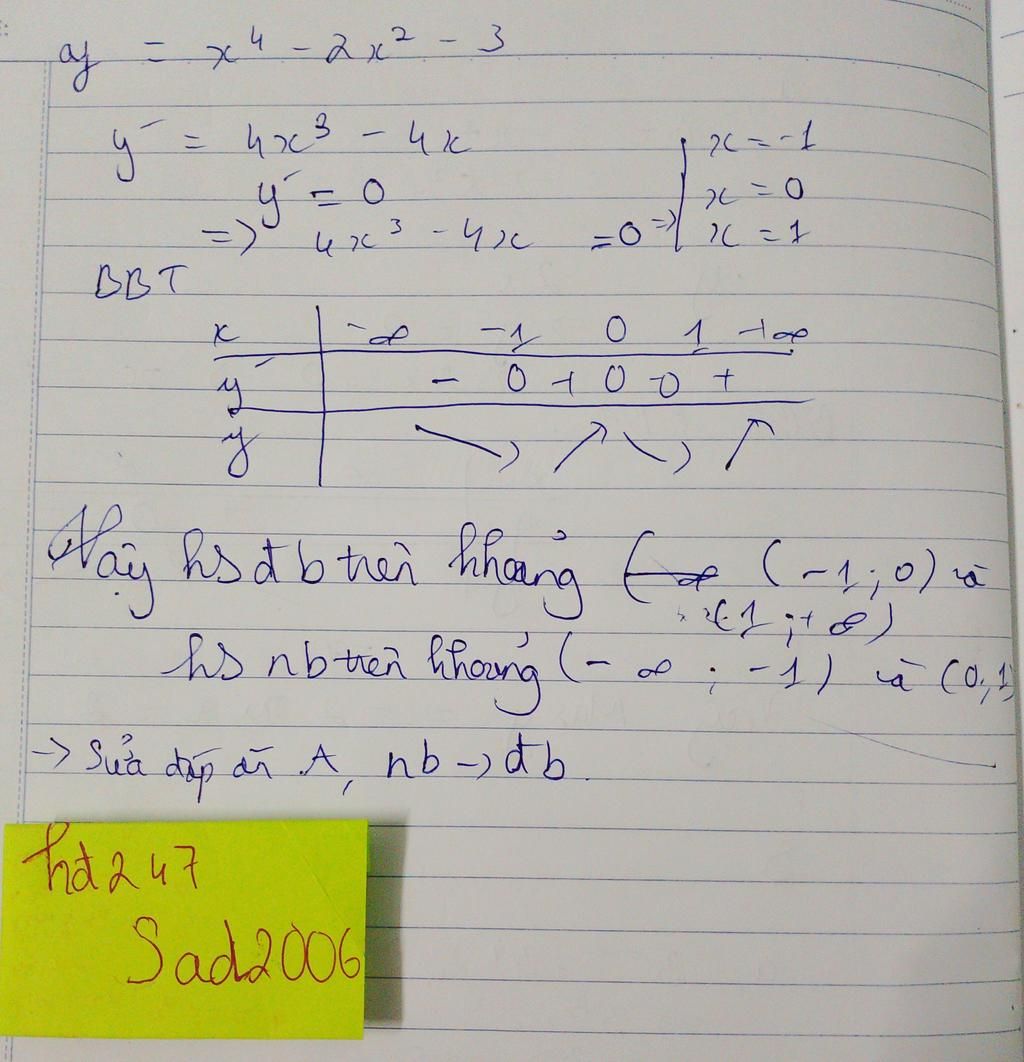 y = x⁴ - 2x² - 3
y' = 4x³ - 4x
y' = 0
=> 4x³ - 4x = 0 => x = -1
x = 0
x = 1
BBT
x -∞ -1 0 1 +∞
y' - 0 + 0 - 0 +
y
Vậy hs đb trên khoảng (-1; 0) và
(1; +∞)
hs nb trên khoảng (-∞; -1) và (0; 1)
-> Sửa đáp án A, nb -> đb.
hd247
Sad2006